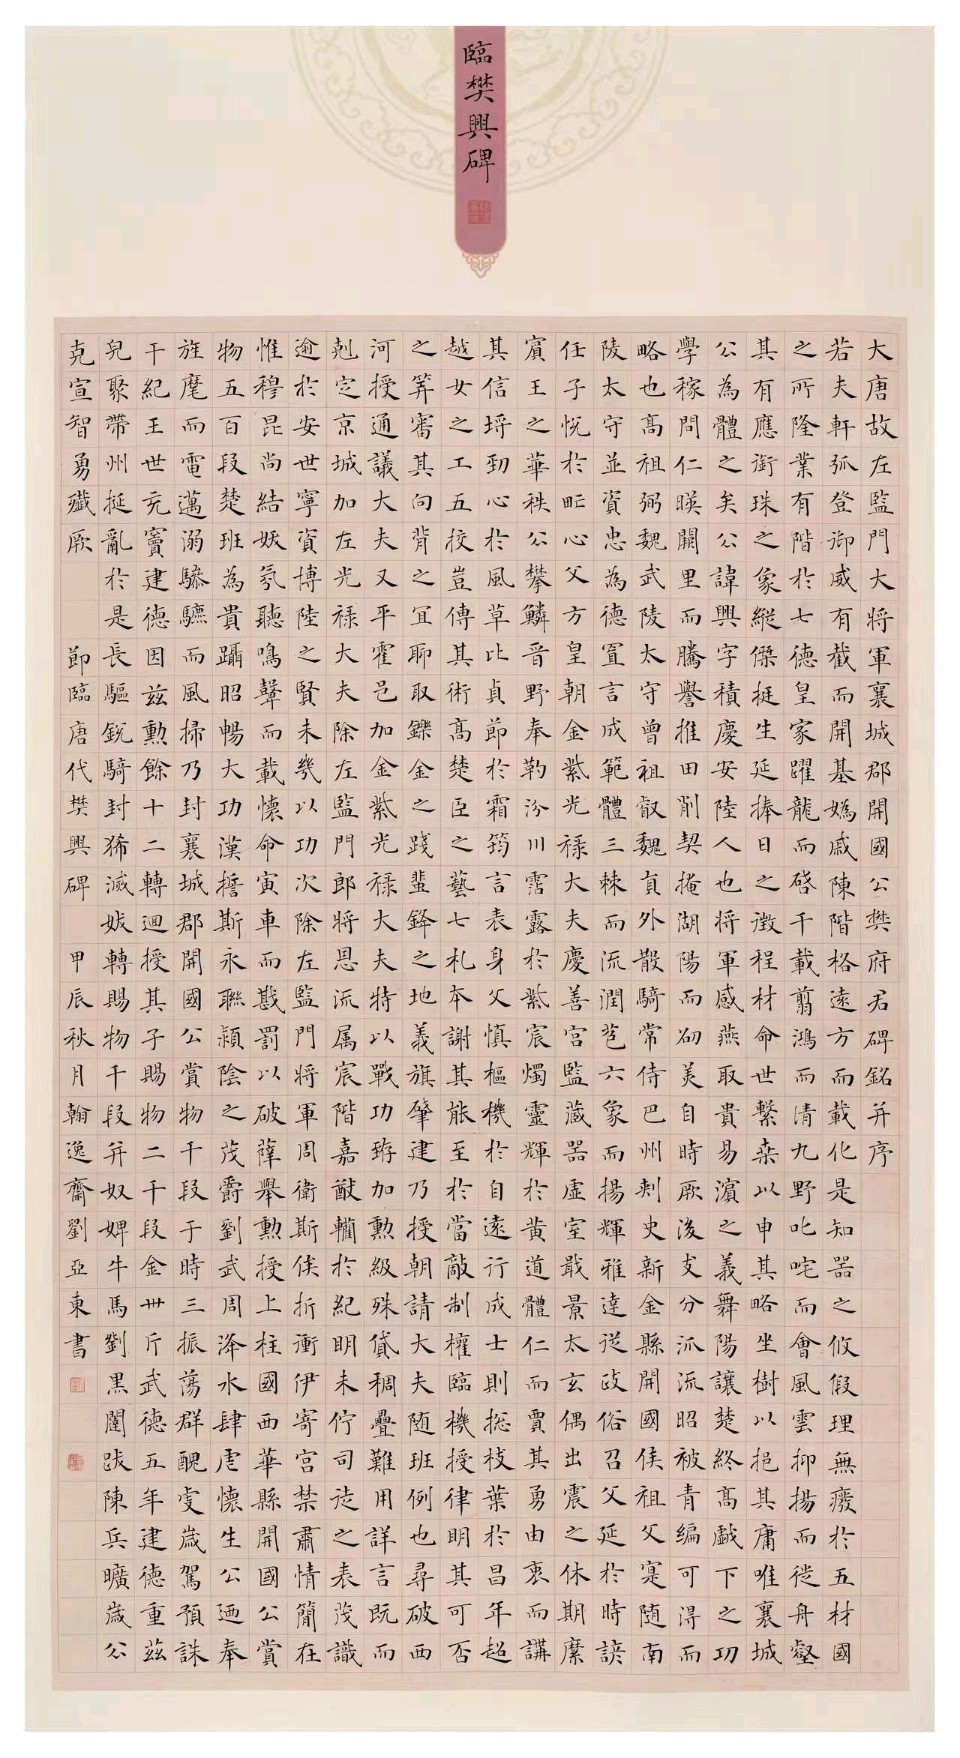 臨樊興碑
大唐故左監門大將軍襄城郡開國公樊府君碑銘并序
若夫軒弧登御威有截而開基媯戚陳階格遠方而載化是知器之攸假理無廢於五材國
之所隆業有階於七德皇家躍龍而啓千載翦鴻而清九野叱咤而會風雲抑揚而從舟壑
其有應銜珠之象縱傑挺生延捧日之徵程材命世繫桒以申其略坐樹以挹其庸唯襄城
公為體之矣公諱興字積慶安陸人也將軍感燕取貴易濵之義舞陽讓楚終高戲下之功
學稼問仁暎闕里而騰譽推田削契掩湖陽而劭美自時厥後支分派流昭被青編可得而
略也高祖弼魏武陵太守曾祖叡魏貟外散騎常侍巴州刾史新金縣開國侯祖父寔随南
陵太守並資忠為德置言成範體三棘而流潤苞六象而揚輝雅達從政俗召父延於時談
任子悦於甿心父方皇朝金紫光禄大夫慶善宫監藏器虚室戢景太玄偶出震之休期縻
賔王之華秩公攀鱗晋野奉勒汾川霑露於紫宸燭靈輝於黄道體仁而賈其勇由衷而講
其信埒劲心於風草比貞節於霜筠言表身父慎樞機於自遠行成士則揔枝葉於昌年超
越女之工五校豈傳其術高楚臣之藝七札夲謝其能至於當敵制權臨機授律明其可否
之筭審其向背之冝聊取鑠金之踐蜚鋒之地義旗肈建乃授朝請大夫随班例也尋破西
河授通議大夫又平霍邑加金紫光禄大夫特以戰功蹐加勲級殊貸稠疊難用詳言既而
剋定京城加左光禄大夫除左監門郎將恩流属宸階嘉猷軄於紀明未佇司徒之表茂識
逾於安世寧資博陸之賢未幾以功次除左監門將軍周衛斯俟折衝伊寄宫禁肅情簡在
惟穆昆尚結妖氛聽鳴聲而載懷命寅車而戡罰以破薛舉勲授上柱國西華縣開國公賞
物五百段楚班為貴躡昭暢大功漢誓斯永聮潁陰之茂爵劉武周洚水肆虐懷生公廼奉
旌麾而電邁溺驂驪而風掃乃封襄城郡開國公賞物千段于時三振蕩群醜叏歳駕預誅
干紀王世充竇建德因茲勲餘十二轉迴授其子賜物二千段金卅斤武德五年建德重茲
皃聚帶州挺亂於是長驅銳騎封豨滅妭轉賜物千段并奴婢牛馬劉黒闥跋陳兵曠歳公
克宣智勇殱厥
節臨唐代樊興碑 甲辰秋月翰逸齋劉亞東書